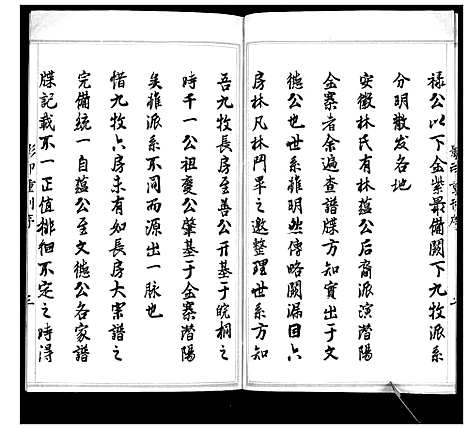 祿公以下金紫最備闕下九牧派系
分明散发各地
安徽林氏有林蕴公后裔派演潛陽
金寨者余遍查諜方知實出于文
德公也世系雖明然傳略闕漏囙六
房林凡林門畢之邀整理世系方知
吾九牧長房至善公开基于皖桐之
時千一公祖褒公肇基于金寨潛陽
矣雖派系不同而源出一脉也
惜九牧六房未有如長房大宗譜之
完備統一自蕴公至文德公各家譜
牒記载不一正值排徊不定之時得
影印重刊序
三